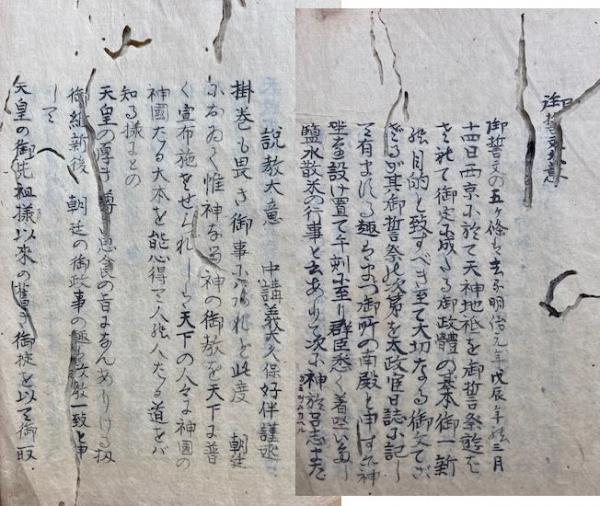 御誓文大意
御誓文の五ヶ條ハ去ル明治元年戊辰ノ年三月
十四日西京ニ於て天神地祇を御誓祭遊
されて御定ニ成りたる御政體の基本御一新
の目的と致すべき至て大切なる御文でござ
其御誓祭の次第を太政官日誌に記し
て有まする趣はまづ御所の南殿と申す神
坐を設け置て午刻ニ至り群臣悉く着坐
鹽水散米の行事と云ありて次ニ神於呂志
説教大意 中講義大久保好伴謹述
掛巻も畏き御事ながられど此度 朝廷
において惟神なる神の御教を天下に普
く宣布施をせられ 天下の人々に神國の
神國たる大本を能心得て人の人たる道をバ
知る様にとの
天皇の厚き思食の旨 ありける扨
御維新後 朝廷の御政事の 政教一致と申
して
天皇の御先祖様以来の舊き御掟を以て御取